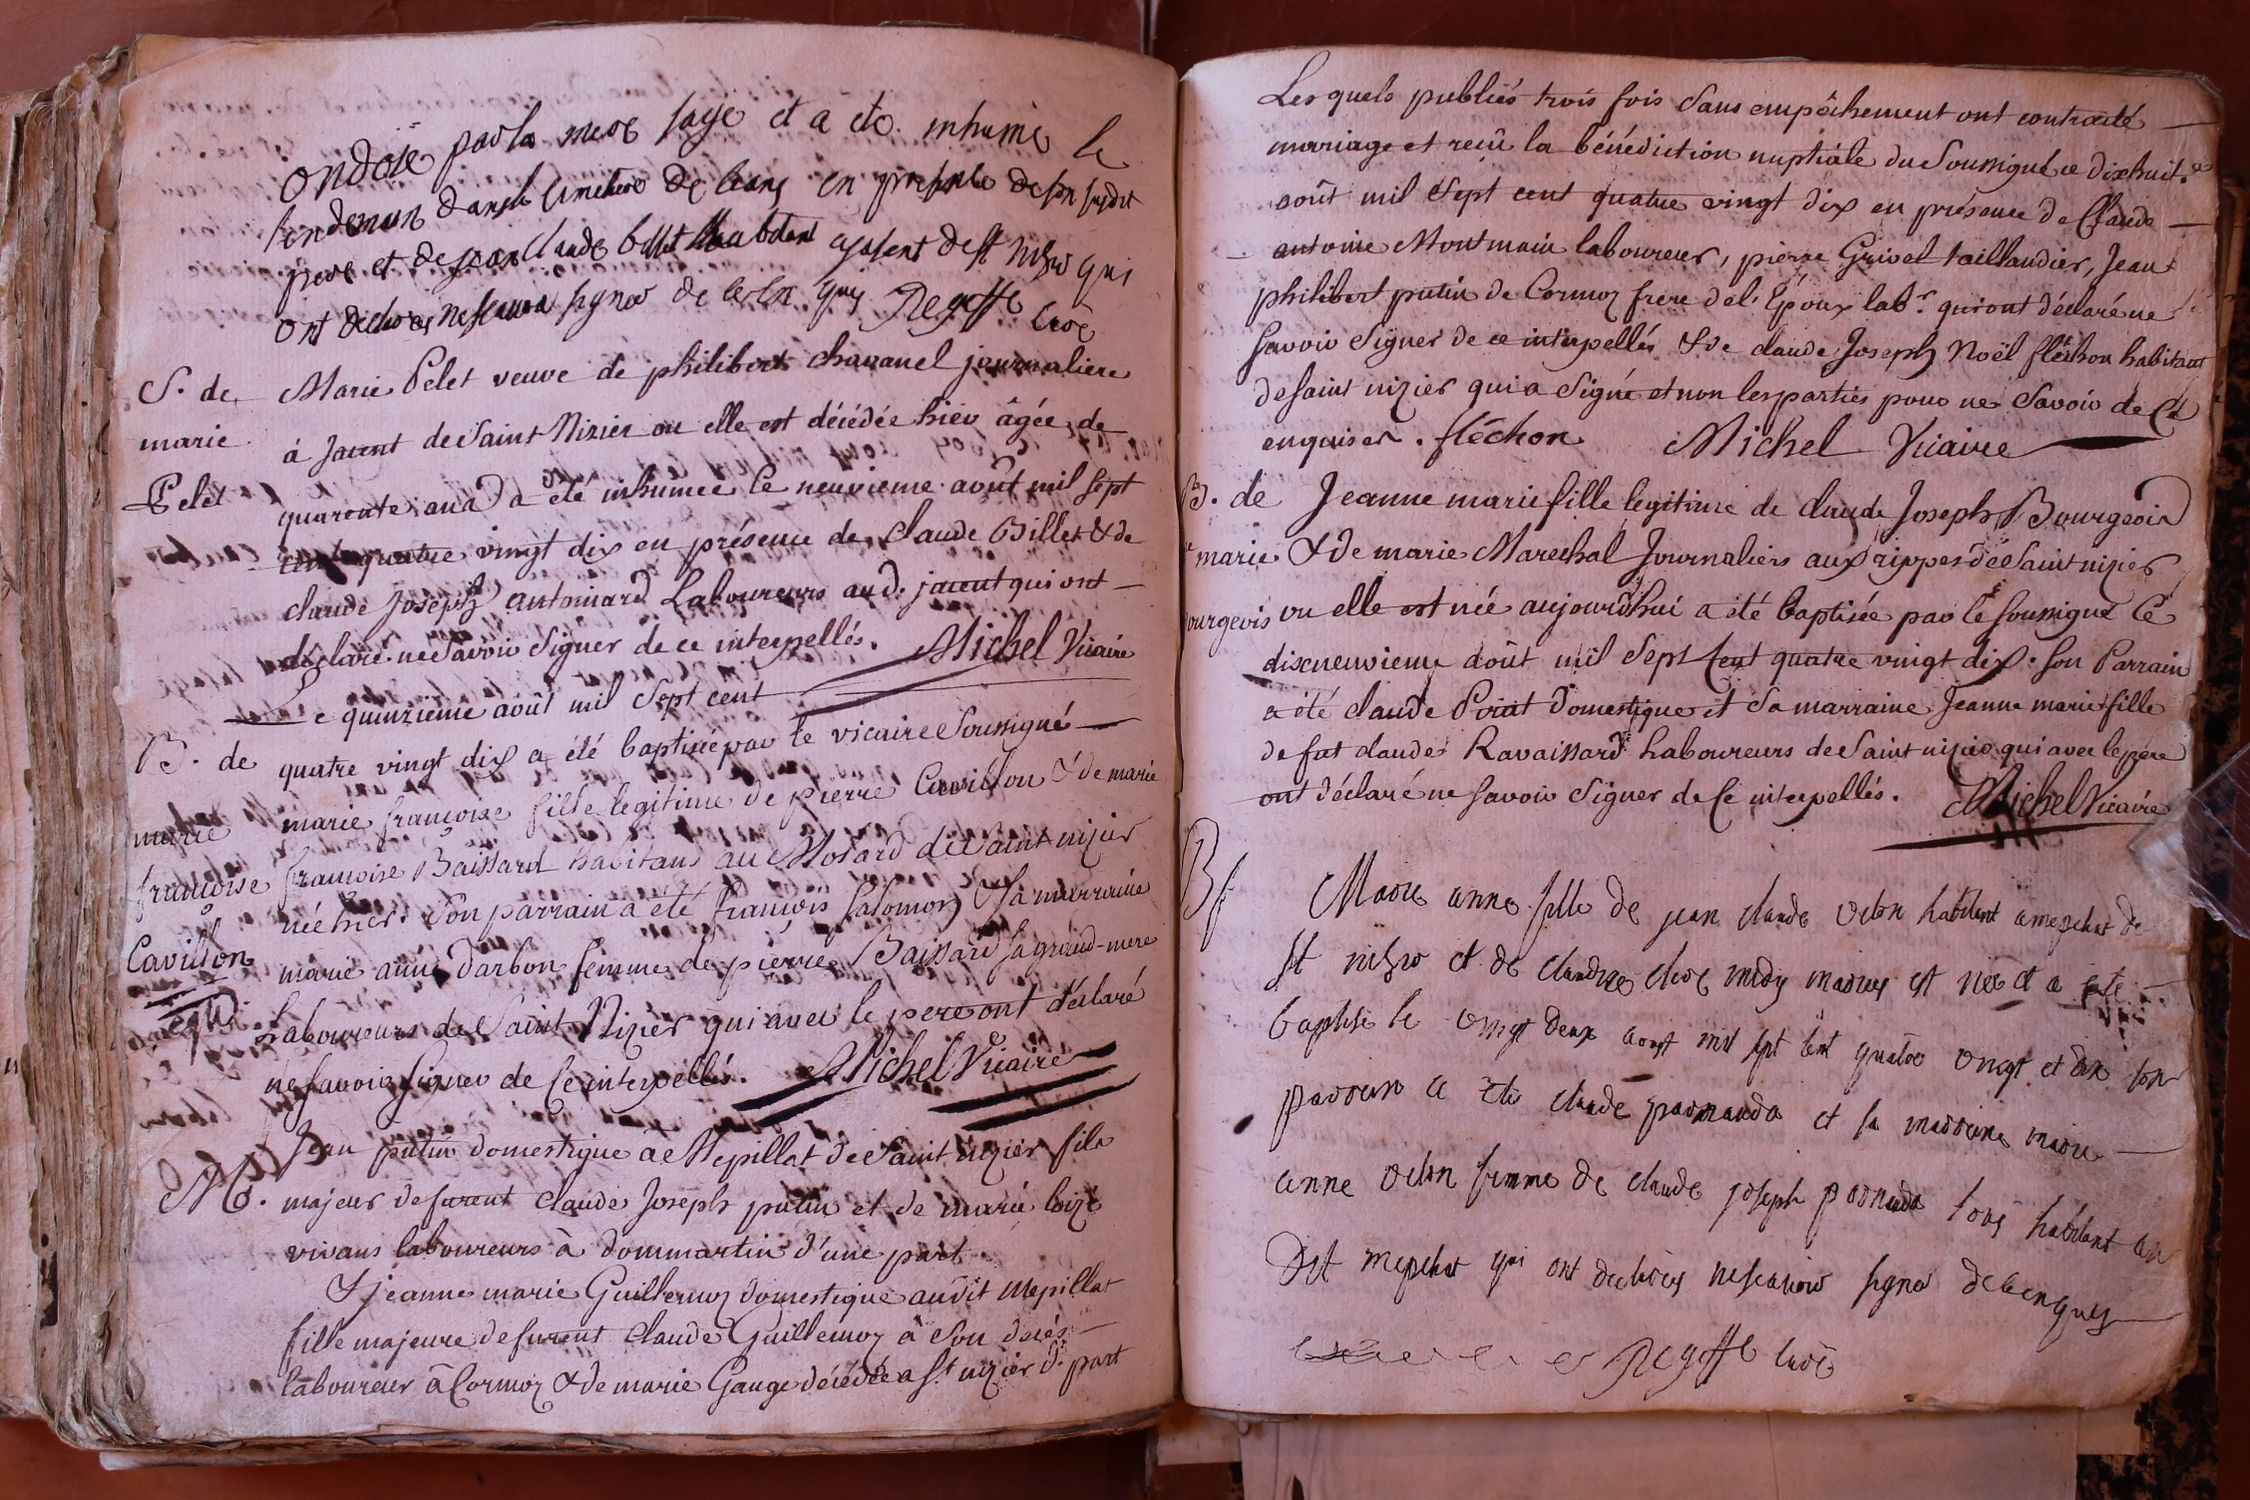 ondoïé par la mere sage et a ete inhumé le
lendemain dans le cimetiere de ceans en presence de son susdit
pere et de jean claude billet habitant a jasent de st nizier qui
ont declarés ne scavoir signer de ce enquis Regeffe curé
S. de Marie Pelet veuve de philibert chavanel journaliere
marie à Jacent de Saint Nizier ou elle est décédée hier âgée de
Pelet quarente ans a été inhumée le neuvieme août mil sept
cent quatre vingt dix en présence de Claude Billet & de
claude Joseph antoinard Laboureurs aud. jacent qui ont
déclaré ne Savoir Signer de ce interpellés. Michel Vicaire
Le quinzieme août mil Sept cent
B. de quatre vingt dix a été baptisée par le vicaire Soussigné
marie marie françoise fille legitime de pierre Cavillon & de marie
françoise françoise Baissard habitans au Mosard de Saint nizier
née hier. Son parrain a été françois Salomon & Sa marraine
Cavillon marie anne darbon femme de pierre Baissard sa grand-mere
Laboureurs de Saint Nizier qui avec le pere ont déclaré
ne savoir signer de ce interpellés. Michel Vicaire
Jean putin domestique à Mepillat de Saint nizier fils
M. majeur defurent Claude Joseph putin et de marie
vivans laboureurs à dommartin d'une part
& jeanne marie Guillemoz domestique audit Mepillat
fille majeure defurent Claude Guillemoz à Son décés
laboureur à Cormoz & de marie Gauge décédée a St nizier d. part
Lesquels publiés trois fois Sans empêchement ont contracté
mariage et reçû la bénédiction nuptiale du Soussigné ce dixhuit.e
août mil Sept cent quatre vingt dix en présence de Claude
antoine Montmain laboureur, pierre Grivel taillandier, Jean
philibert putin de Cormoz frere de l'Époux lab.r qui ont déclaré ne
Savoir Signer de ce interpellés & de claude Joseph Noël fléchon habitant
de saint nizier qui a Signé et non les parties pour ne Savoir de ce
enquises. fléchon Michel Vicaire
B. de Jeanne marie fille legitime de claude Joseph Bourgeois
marie & de marie Marechal Journaliers aux rippes de Saint nizier
ourgeois ou elle est née aujourd'hui a été baptisée par le soussigné le
dixneuvieme août mil Sept Cent quatre vingt dix. Son Parrain
a été claude Poiat domestique et Sa marraine Jeanne marie fille
de fut claude Ravaissard Laboureurs de Saint nizier qui avec le pere
ont déclaré ne savoir Signer de ce interpellés. Michel Vicaire
B Marie anne fille de jean claude velon habitant a mepelat de
st nizier et de claudine clere midy mariés est née et a eté
baptisé le vingt deux aoust mil sept cent quatre vingt et dix son
parrain a eté claude parnauda et sa marraine marie
anne velon femme de claude joseph parnauda tous habitant au
dit mepelat qui ont declarés ne scavoir signer de ce enquis
Regeffe curé